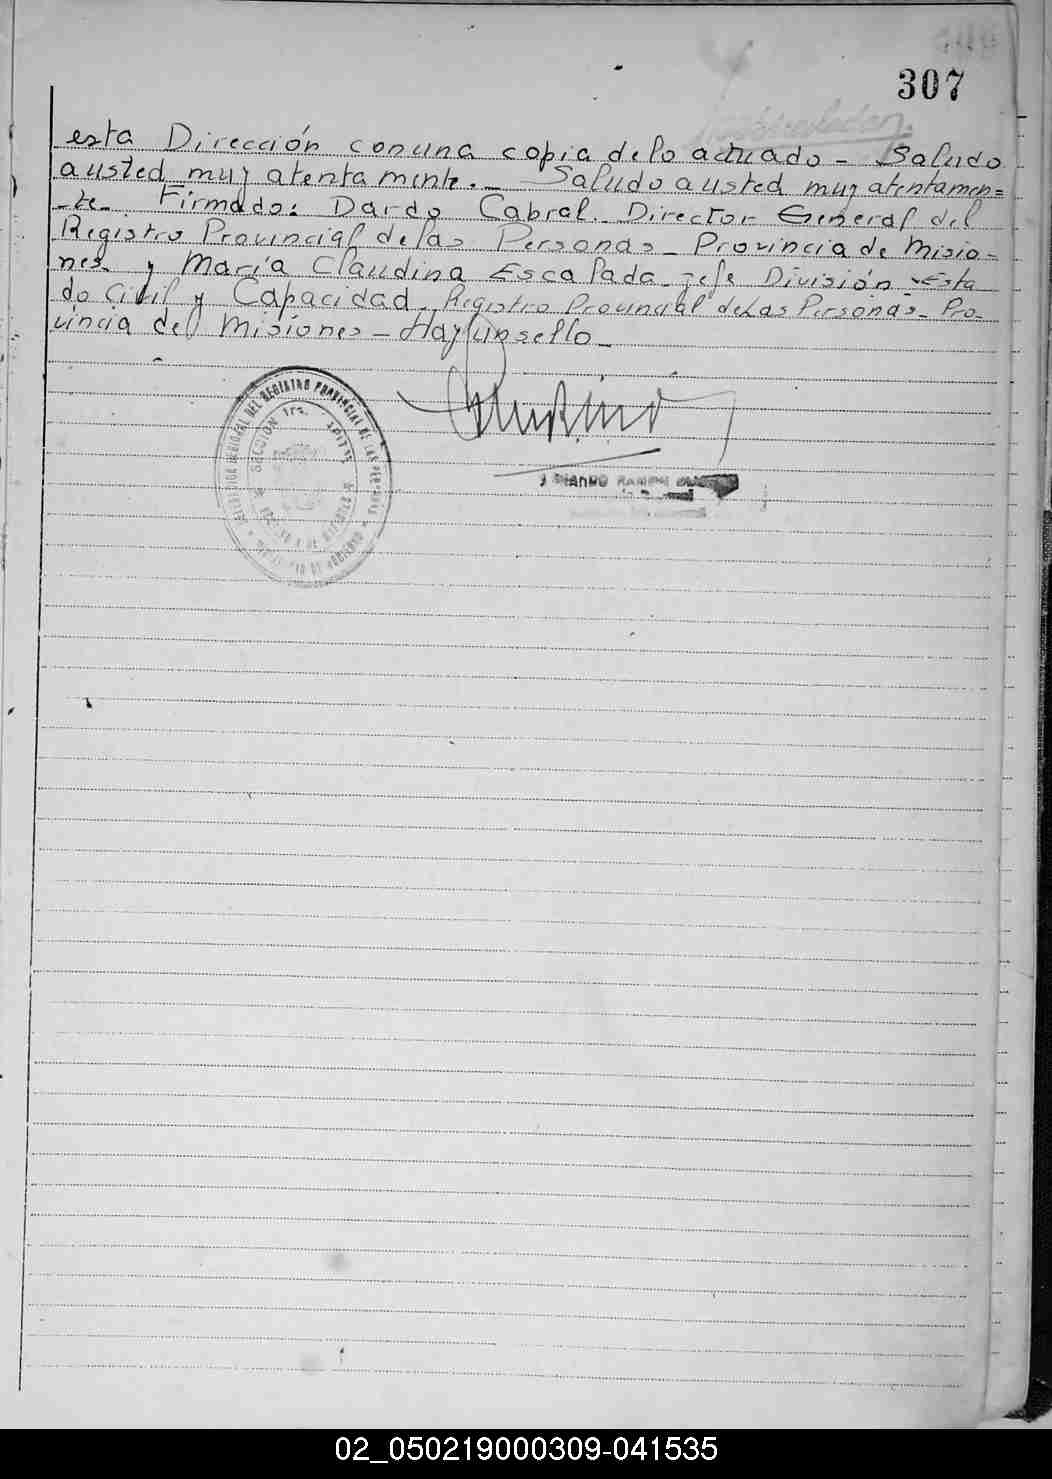 307
esta Dirección conuna copia delo actuado - Saludo
austed muy atentamente. - Saludo austed muy atentamen=
-te- Firmado: Dardo Cabral. Director General del
Registro Provincial delas Personas - Provincia de Misio-
nes y María Claudina Escalada - Jefe División - Esta
do Civil y Capacidad - Registro Provincial delas Personas - Pro-
vincia del Misiones - Hay un sello -
DEL REGISTRO PROVINCIAL DE LAS PERSONAS
SECCION 1ra.
RAMON
02_050219000309-041535